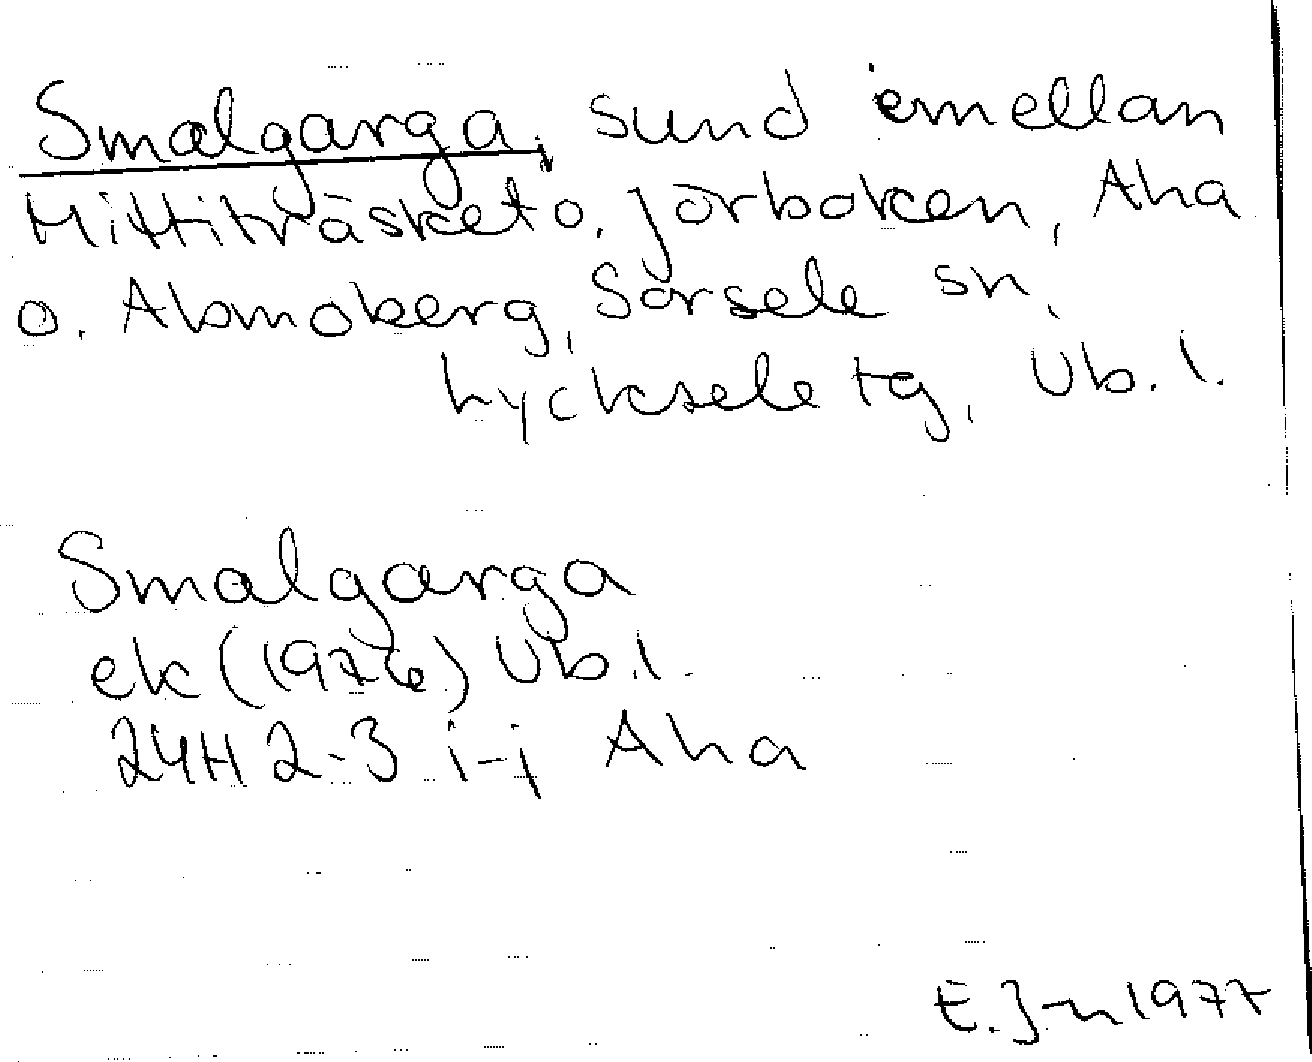 Smalgarga, sund emellan
Mittiträsket o. Jorboken, Aha
o. Abmoberg, Sorsele sn,
Lycksele tg, Vb. l.
Smalgarga
ek (1976) Vb. l.
24H 2-3 i-j Aha
E. J-n 1977